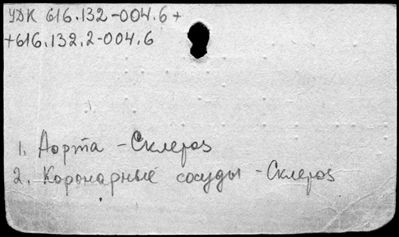 УДК 616.132-004.6 +
+616.132.2-004.6
1. Аорта - Склероз
2. Коронарные сосуды - Склероз